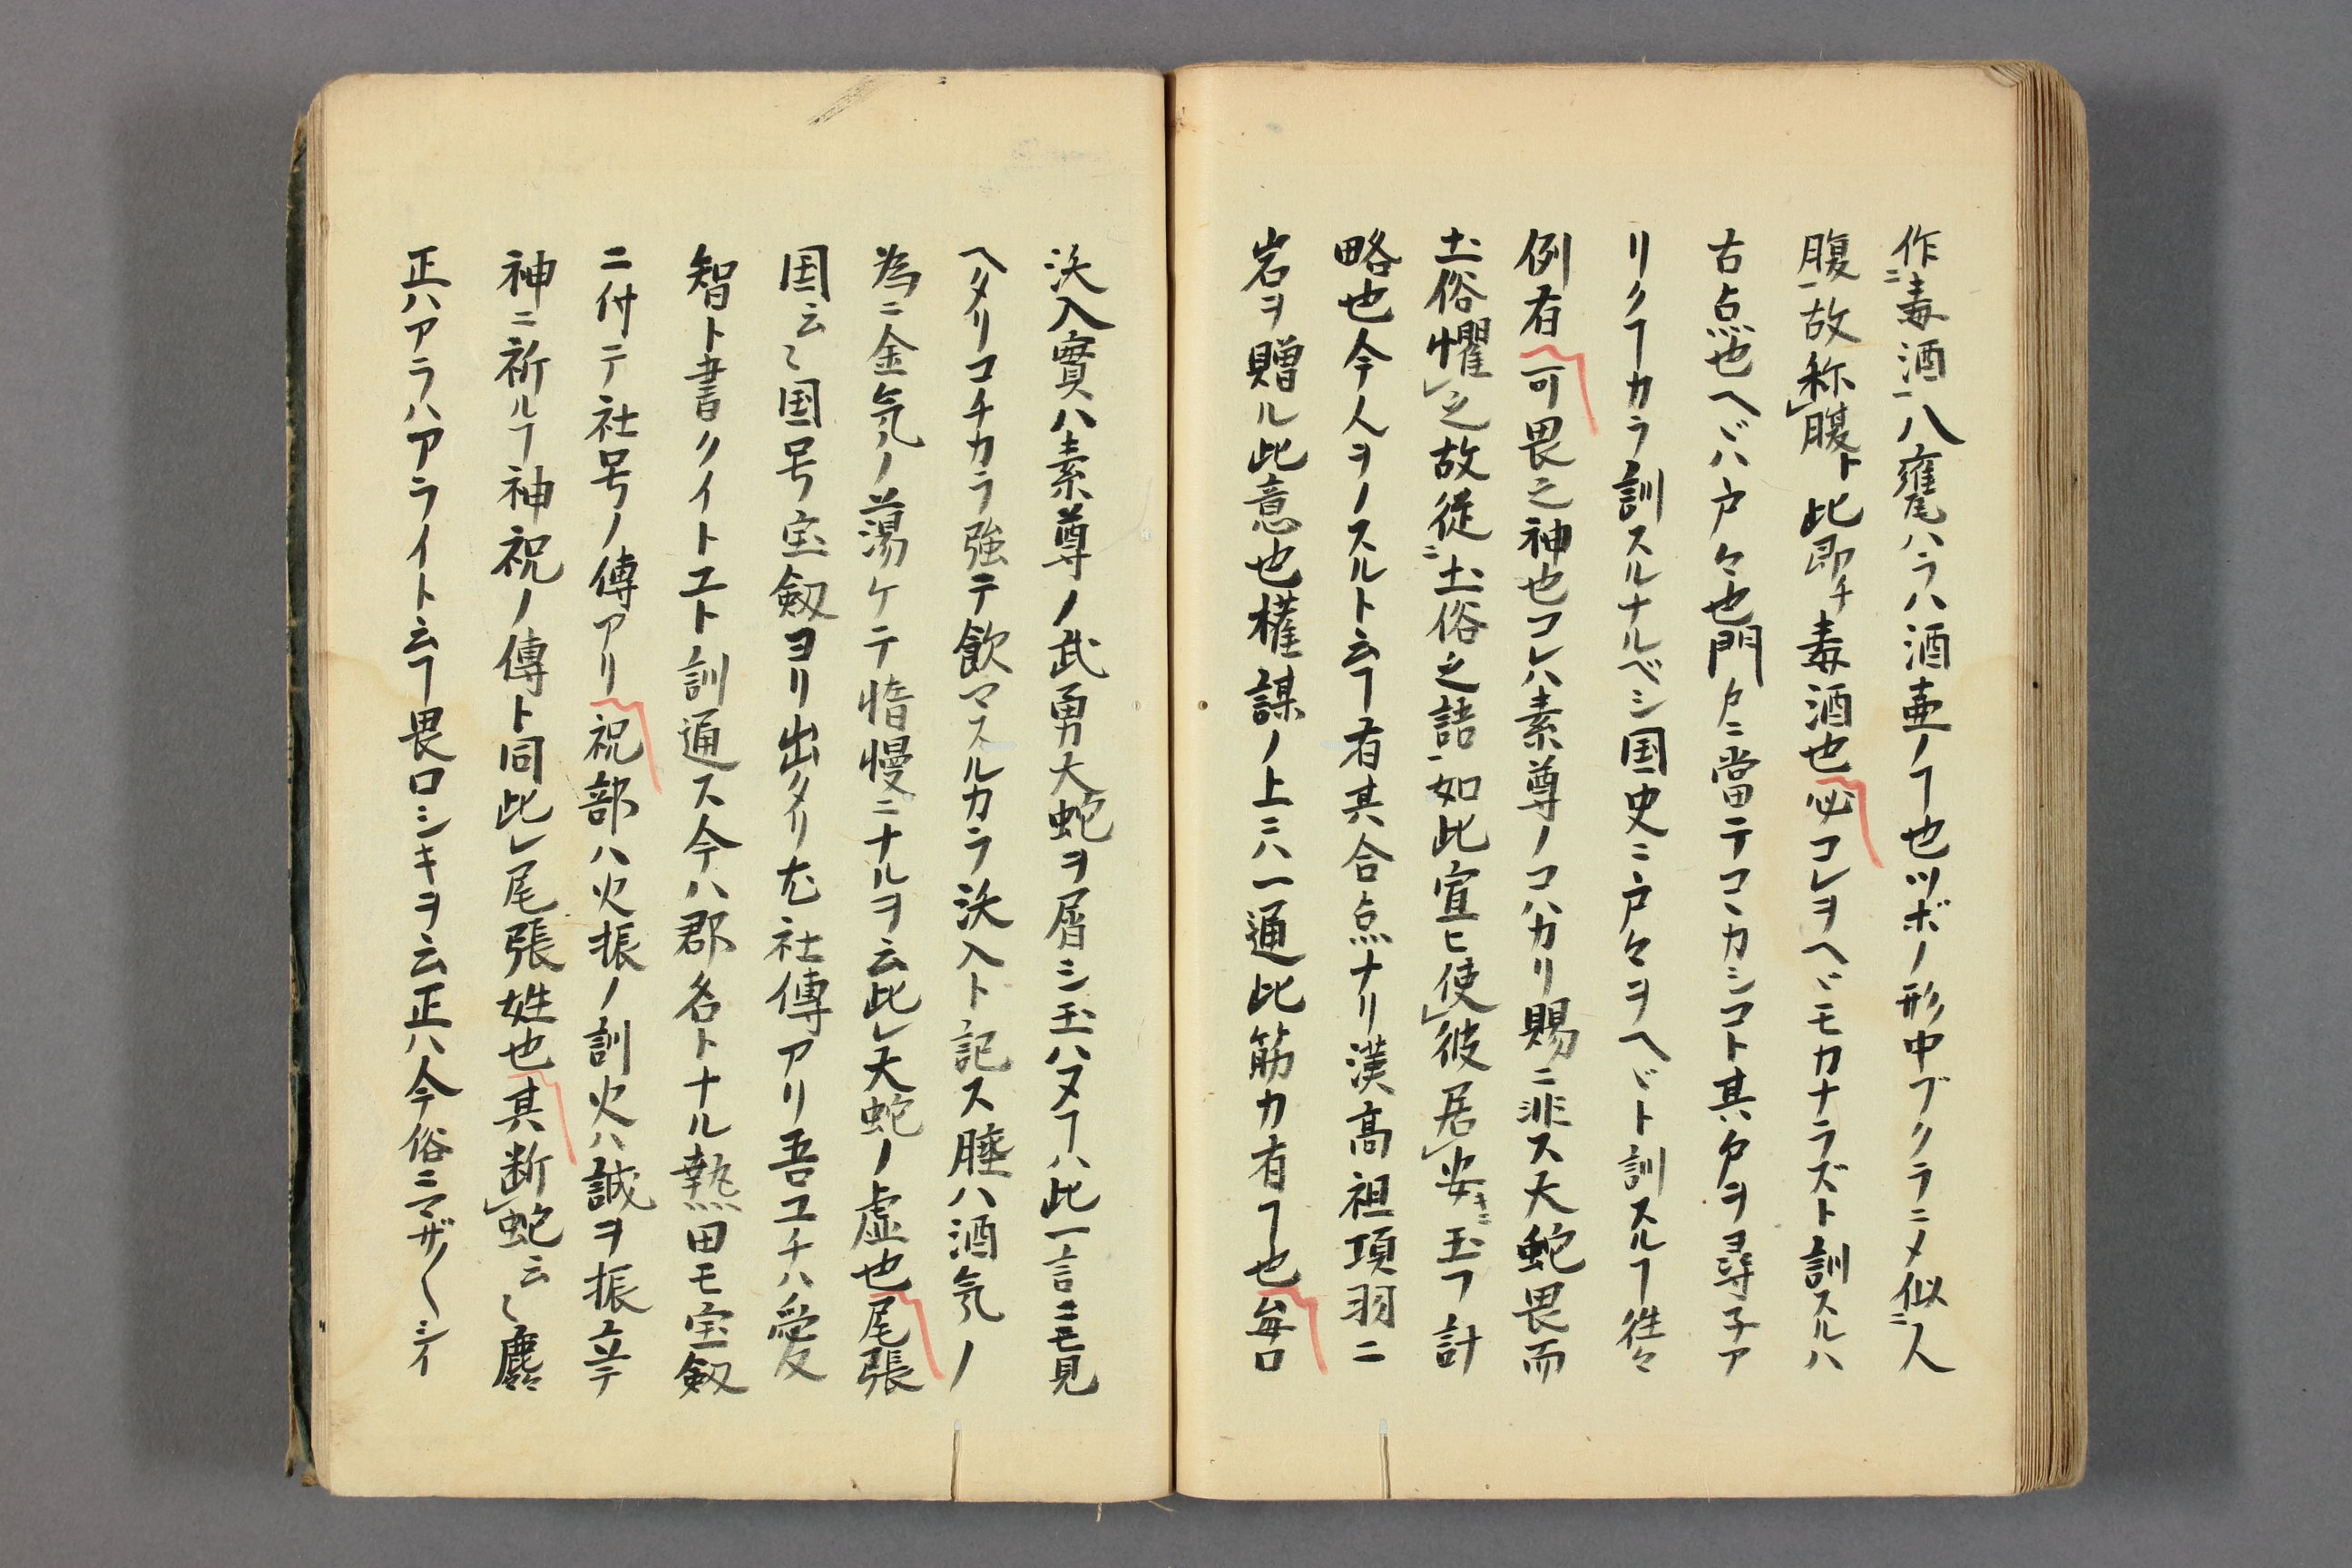 作ニ毒酒一八甕ハラハ酒壷ノヿ也ツボノ形中ブクラニメ似ニ人
腹一故称レ腹ト此即チ毒酒也必コレヲヘドモカナラズト訓スルハ
古点也ヘドハ戸々也門戸ニ當テコヽカシコト其戸ヲ尋子ア
リクヿカラ訓スルナルベシ国史ニ戸々ヲヘドト訓スルヿ徃々
例有可畏之神也コレハ素尊ノコハカリ賜ニ非ス大蛇畏而
土俗懼レ之故従ニ土俗之語一如此宣ヒ使レ彼居レ安キニ玉フ計
略也今人ヲノスルト云ヿ有其合点ナリ漢高祖項羽ニ
岩ヲ贈ル此意也権謀ノ上ニハ一通此筋カ有ヿ也毎口
沃入實ハ素尊ノ武勇大蛇ヲ屑シ玉ハヌヿハ此一言ニモ見
ヘタリコチカラ強テ飲マスルカラ沃入ト記ス睡ハ酒気ノ
為ニ金気ノ蕩ケテ惛慢ニナルヲ云此レ大蛇ノ虚也尾張
国云々国号宝剱ヨリ出タリ尤社傳アリ吾ユチハ愛
智ト書クイトユト訓通ス今ハ郡名トナル熱田モ宝剱
ニ付テ社号ノ傳アリ祝部ハ火振ノ訓火ハ誠ヲ振立テ
神ニ祈ルヿ神祝ノ傳ト同此レ尾張姓也其断レ蛇云々麤
正ハアラハアライト云ヿ畏ロシキヲ云正ハ今俗ニマザ〱シイ